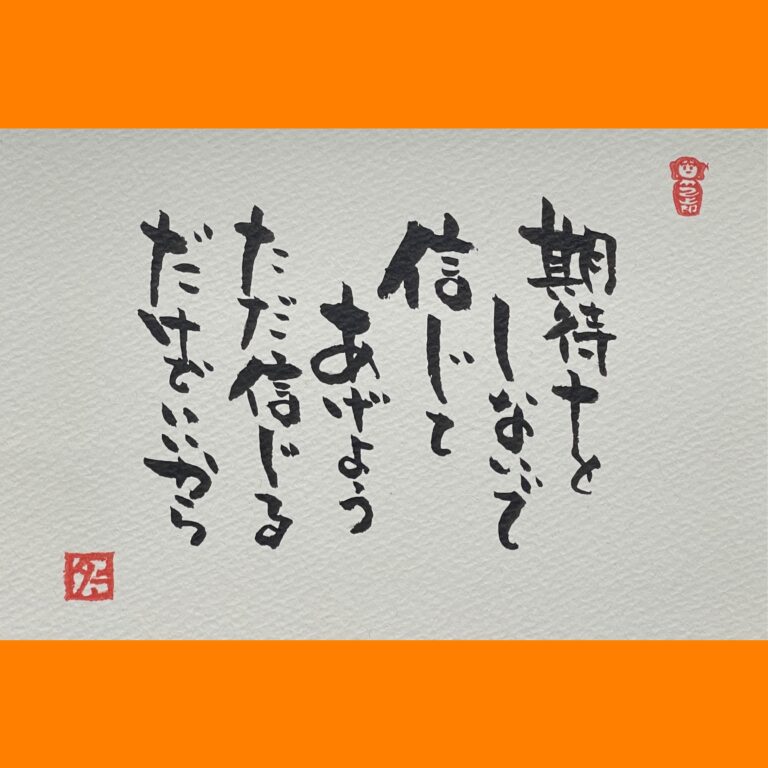 期待など
しないで
信じて
あげよう
ただ信じる
だけでいいから